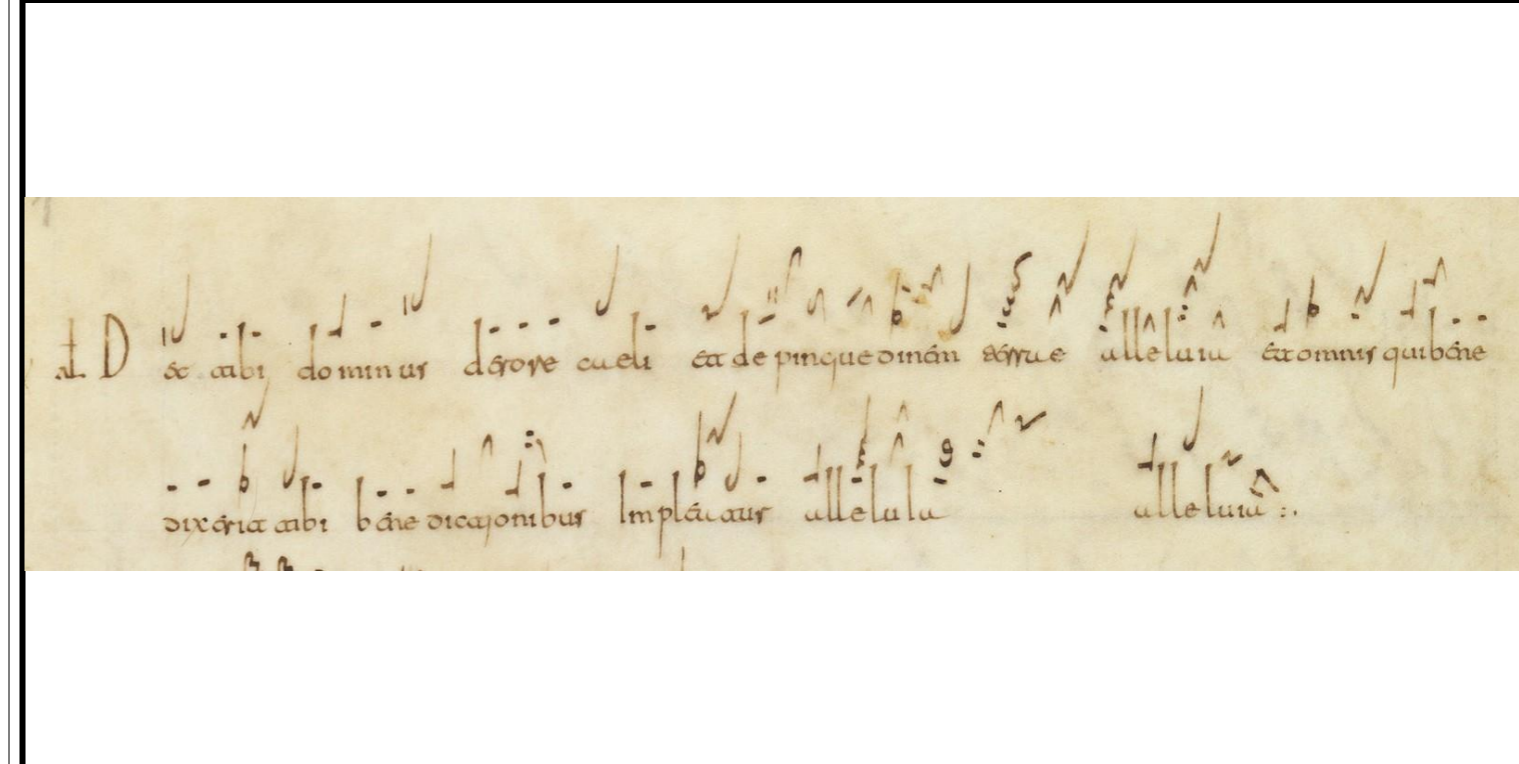 Det tibi dominus de rore caeli et de pinguedinem terrae alleluia et omnis qui bene
dixerit tibi benedictjonibus Impleatur allelula alleluia